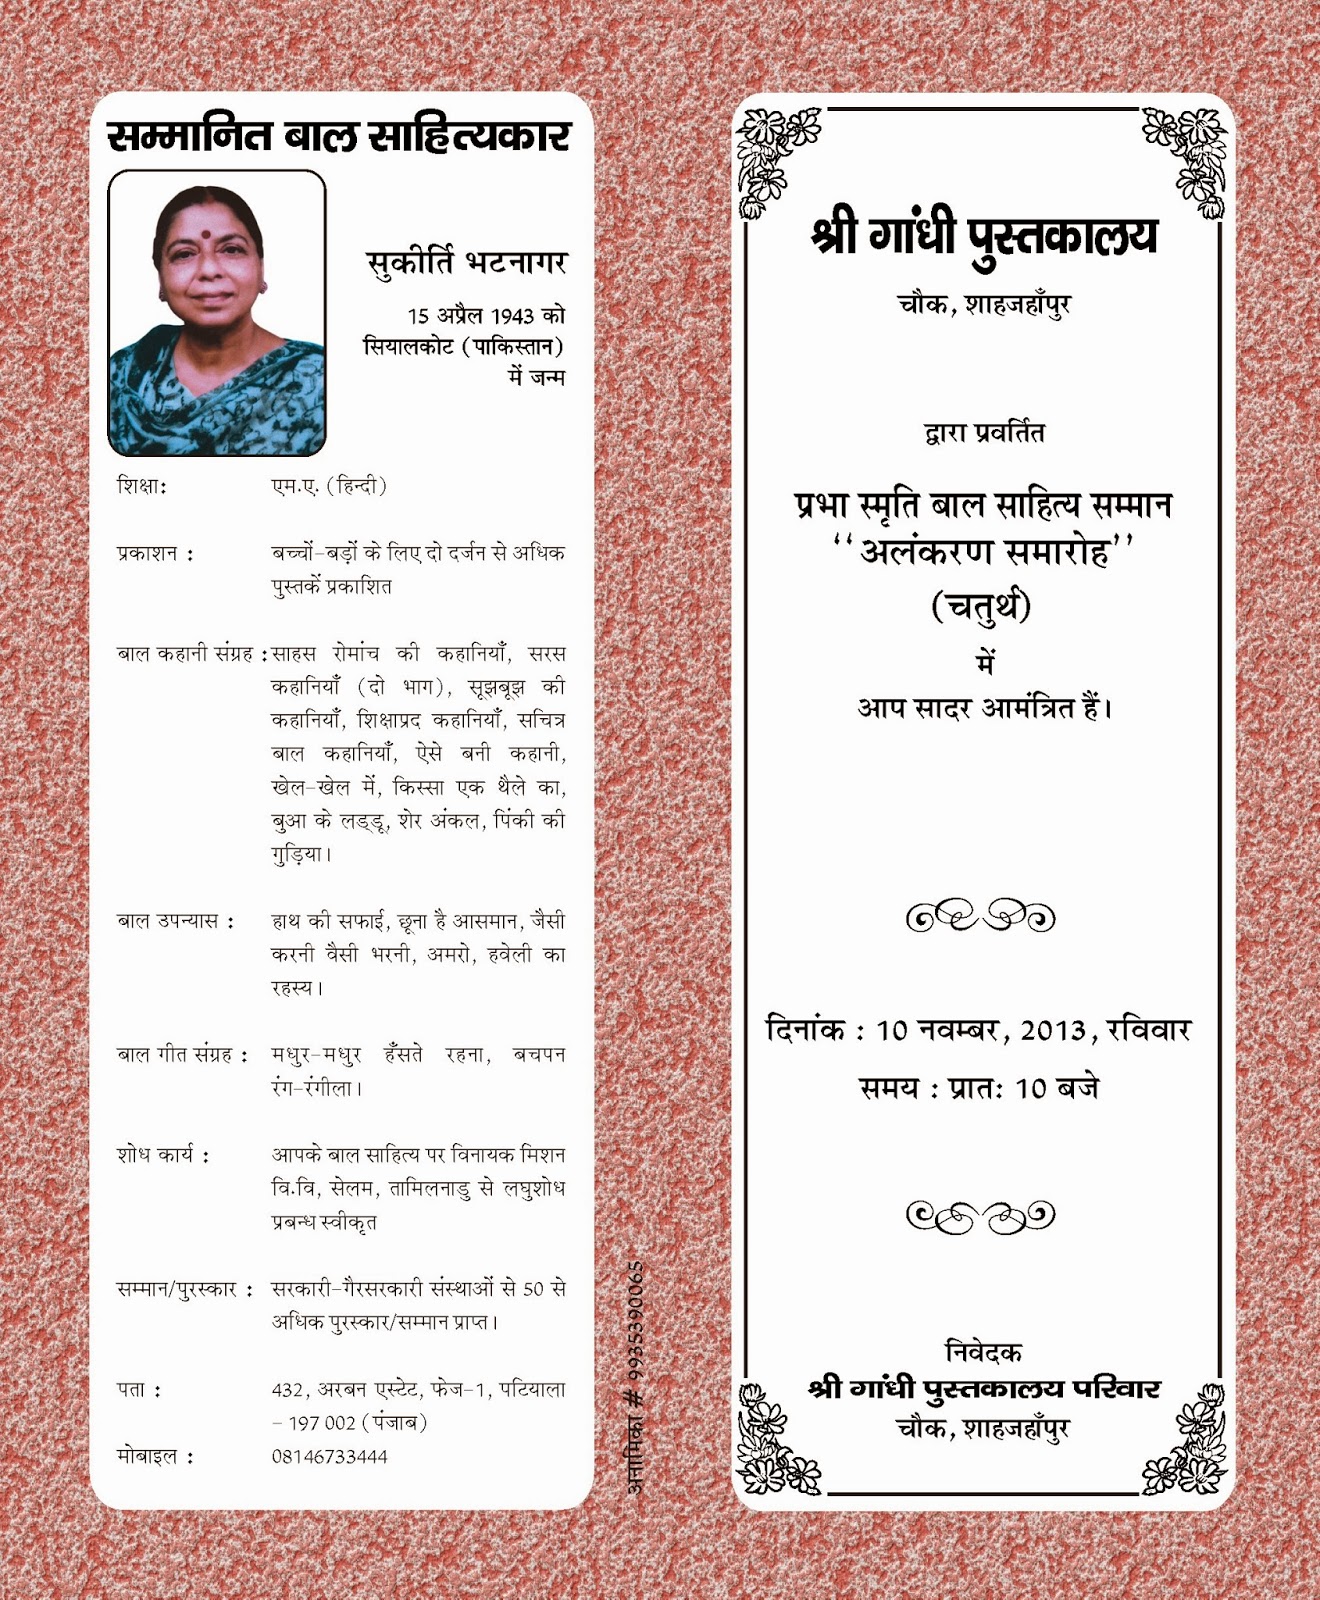 सम्मानित बाल साहित्यकार
सुकीर्ति भटनागर
15 अप्रैल 1943 को
सियालकोट (पाकिस्तान)
में जन्म
शिक्षाः एम.ए. (हिन्दी)
प्रकाशन : बच्चों-बड़ों के लिए दो दर्जन से अधिक
पुस्तकें प्रकाशित
बाल कहानी संग्रह : साहस रोमांच की कहानियाँ, सरस
कहानियाँ (दो भाग), सूझबूझ की
कहानियाँ, शिक्षाप्रद कहानियाँ, सचित्र
बाल कहानियाँ, ऐसे बनी कहानी,
खेल-खेल में, किस्सा एक थैले का,
बुआ के लड्डू, शेर अंकल, पिंकी की
गुड़िया।
बाल उपन्यास : हाथ की सफाई, छूना है आसमान, जैसी
करनी वैसी भरनी, अमरो, हवेली का
रहस्य।
बाल गीत संग्रह : मधुर-मधुर हँसते रहना, बचपन
रंग-रंगीला।
शोध कार्य : आपके बाल साहित्य पर विनायक मिशन
वि.वि, सेलम, तामिलनाडु से लघुशोध
प्रबन्ध स्वीकृत
सम्मान/पुरस्कार : सरकारी-गैरसरकारी संस्थाओं से 50 से
अधिक पुरस्कार/सम्मान प्राप्त।
पता : 432, अरबन एस्टेट, फेज-1, पटियाला
- 197 002 (पंजाब)
मोबाइल : 08146733444
अनामिका # 9935390065
श्री गांधी पुस्तकालय
चौक, शाहजहाँपुर
द्वारा प्रवर्तित
प्रभा स्मृति बाल साहित्य सम्मान
‘‘अलंकरण समारोह’’
(चतुर्थ)
में
आप सादर आमंत्रित हैं।
दिनांक : 10 नवम्बर, 2013, रविवार
समय : प्रातः 10 बजे
निवेदक
श्री गांधी पुस्तकालय परिवार
चौक, शाहजहाँपुर